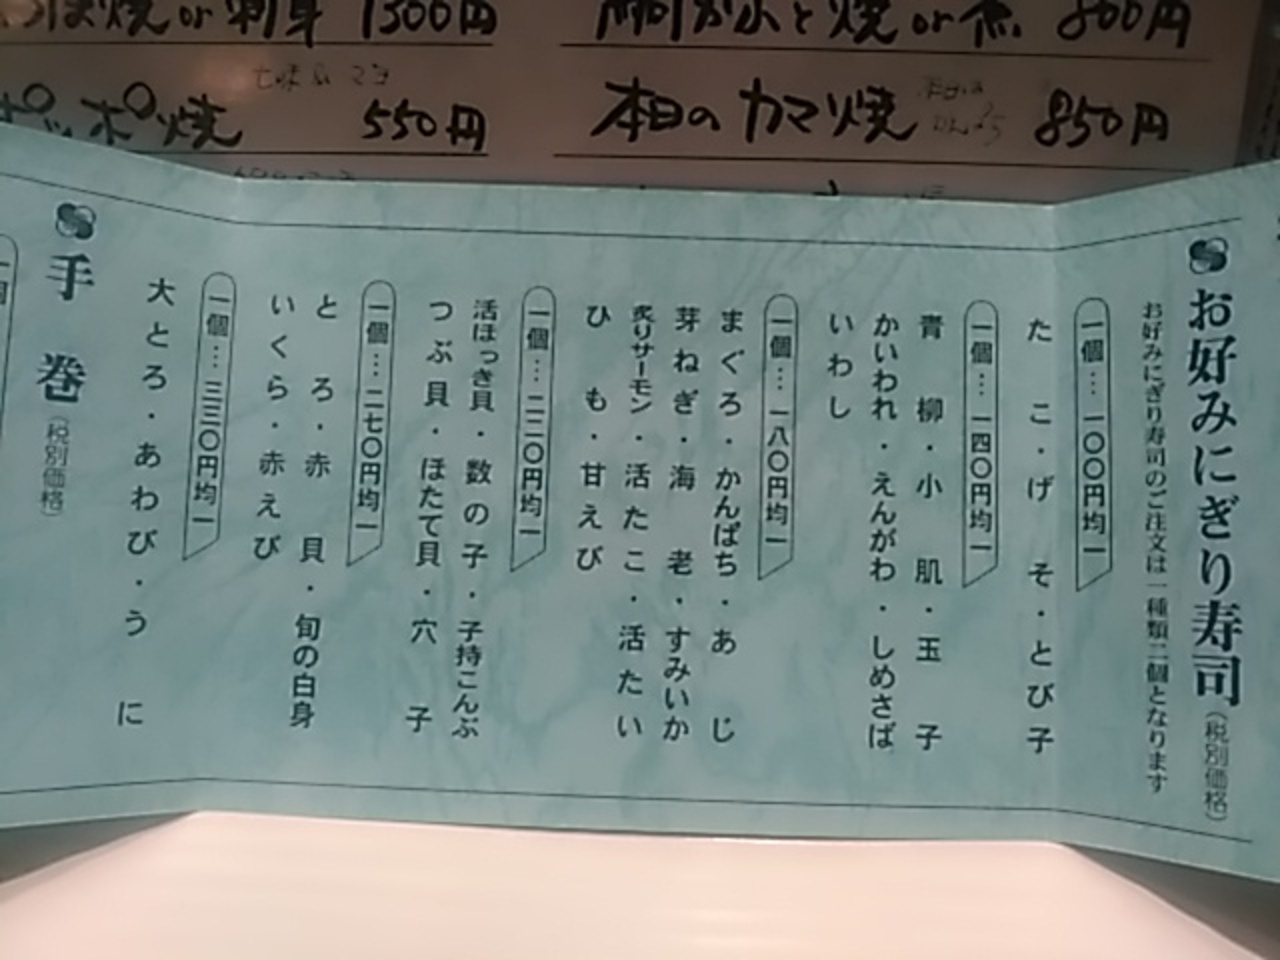 刺身 1300円
ポッポ焼 550円
800円
本日のカマ焼 850円
お好みにぎり寿司(税別価格)
お好みにぎり寿司のご注文は一種類二個となります
一個…一〇〇円均一
たこ・げそ・とび子
一個…一四〇円均一
青柳・小肌・玉子
かいわれ・えんがわ・しめさば
いわし
一個…一八〇円均一
まぐろ・かんぱち・あじ
芽ねぎ・海老・すみいか
炙りサーモン・活たこ・活たい
ひも・甘えび
一個…二二〇円均一
活ほっき貝・数の子・子持こんぶ
つぶ貝・ほたて貝・穴子
一個…二七〇円均一
とろ・赤貝・旬の白身
いくら・赤えび
一個…三三〇円均一
大とろ・あわび・うに
手巻(税別価格)